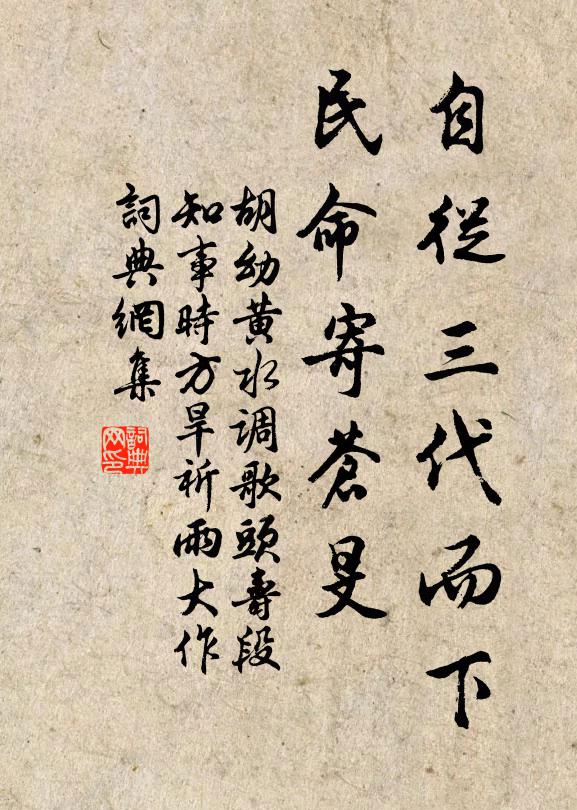 自從三代而下
民命寄蒼旻
胡幼黄水调歌頭壽段
知事時方旱祈雨大作
詞典網集
詞典
网印